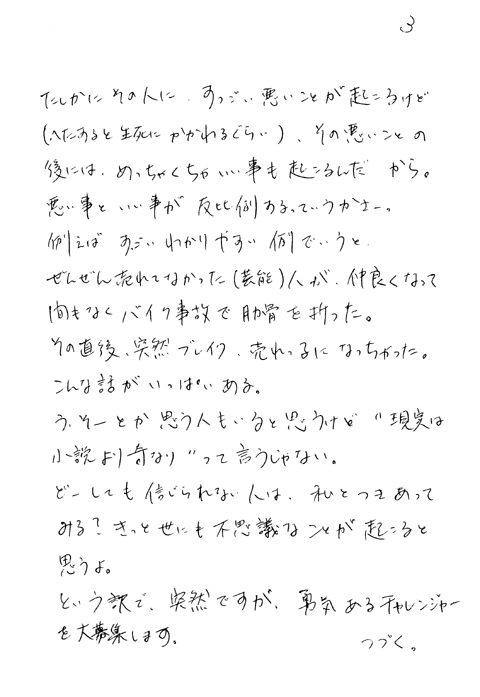 3
たしかに その人に、すっごい悪いことが起こるけど
(へたすると生死にかかわるぐらい)、その悪いことの
後には、めっちゃくちゃいい事も起こるんだ から。
悪い事と いい事が 反比例するっていうかさーっ
例えば すごい わかりやすい 例でいうと、
ぜんぜん売れてなかった(芸能)人が、仲良くなって
間もなくバイク事故で肋骨を折った。
その直後、突然ブレイク、売れっ子になっちゃった。
こんな話がいっぱいある。
う、そーとか思う人もいると思うけど "現実は
小説より奇なり"って言うじゃない。
どーしても信じられない人は、私とつきあって
みる?きっと世にも不思議なことが起こると
思うよ。
という訳で、突然ですが、勇気あるチャレンジャー
を大募集します。
つづく。